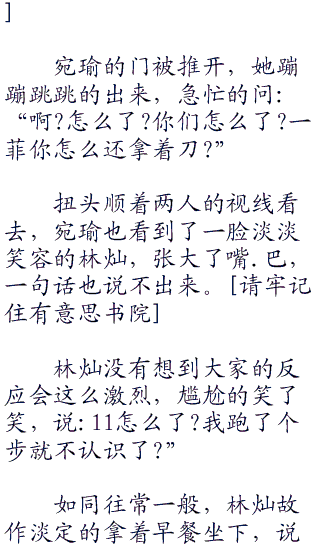 ]
宛瑜的门被推开，她蹦
蹦跳跳的出来，急忙的问：
“啊?怎么了?你们怎么了?一
菲你怎么还拿着刀?”
扭头顺着两人的视线看
去，宛瑜也看到了一脸淡淡
笑容的林灿，张大了嘴.巴，
一句话也说不出来。[请牢记
住有意思书院]
林灿没有想到大家的反
应会这么激烈，尴尬的笑了
笑，说：11怎么了?我跑了个
步就不认识了?”
如同往常一般，林灿故
作淡定的拿着早餐坐下，说